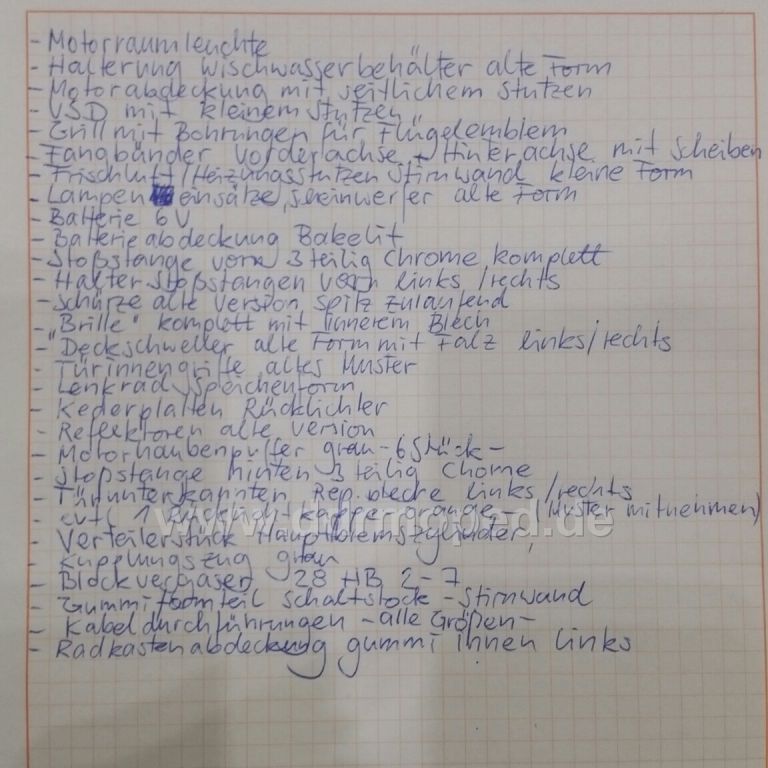 - Motorraumleuchte
- Halterung Wischwasserbehälter alte Form
- Motorabdeckung mit seitlichem Stutzen
- VSD mit "kleinem Stutzen"
- Grill mit Bohrungen für Flügelemblem
- Fangbänder Vorderachse + Hinterachse mit Scheiben
- Frischluft/Heizungsstutzen Stirnwand kleine Form
- Lampeneinsätze, Scheinwerfer alte Form
- Batterie 6V
- Batterieabdeckung Bakelit
- Stoßstange vorn 3teilig Chrome komplett
- Halter Stoßstangen vorn links/rechts
- Schürze alte Version spitz zulaufend
- "Brille" komplett mit innerem Blech
- Deckschweller alte Form mit Falz links/rechts
- Türinnengriffe altes Muster
- Lenkrad Speichenform
- Kederplatten Rücklichter
- Reflektoren alte Version
- Motorhaubenpuffer grau - 6 Stück -
- Stoßstange hinten 3teilig Chome
- Türunterkannten Rep.bleche links/rechts
- evtl 1 orange - (Muster mitnehmen)
- Verteilerstück Hauptbremszylinder
- Kupplungszug grau
- Blockvergaser 28 HB 2-7
- Gummiformteil Schaltstock - Stirnwand
- Kabeldurchführungen - alle Größen -
- Radkastenabdeckung gummi innen links
www.dormoped.de